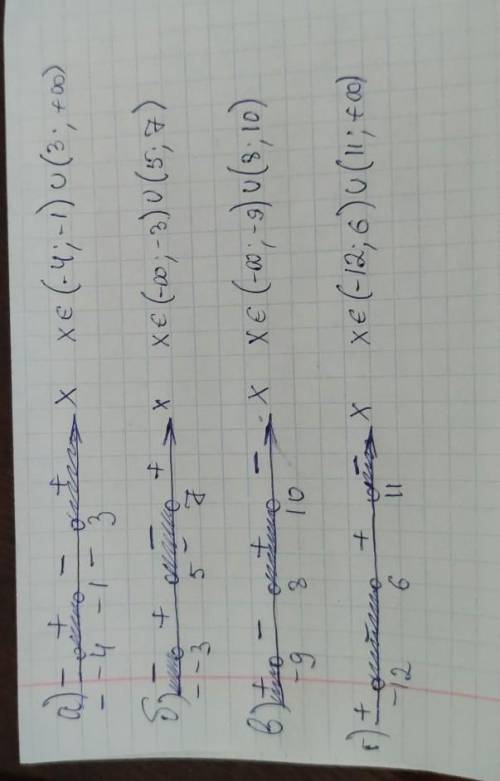 а) − + − + x x ∈ (-4; -1) ∪ (3; +∞)
-4 -1 3
б) − + − + x x ∈ (-∞; -3) ∪ (5; 7)
-3 5 7
в) + − + − x x ∈ (-∞; -9) ∪ (8; 10)
-9 8 10
г) + − + − x x ∈ (-12; 6) ∪ (11; +∞)
-12 6 11